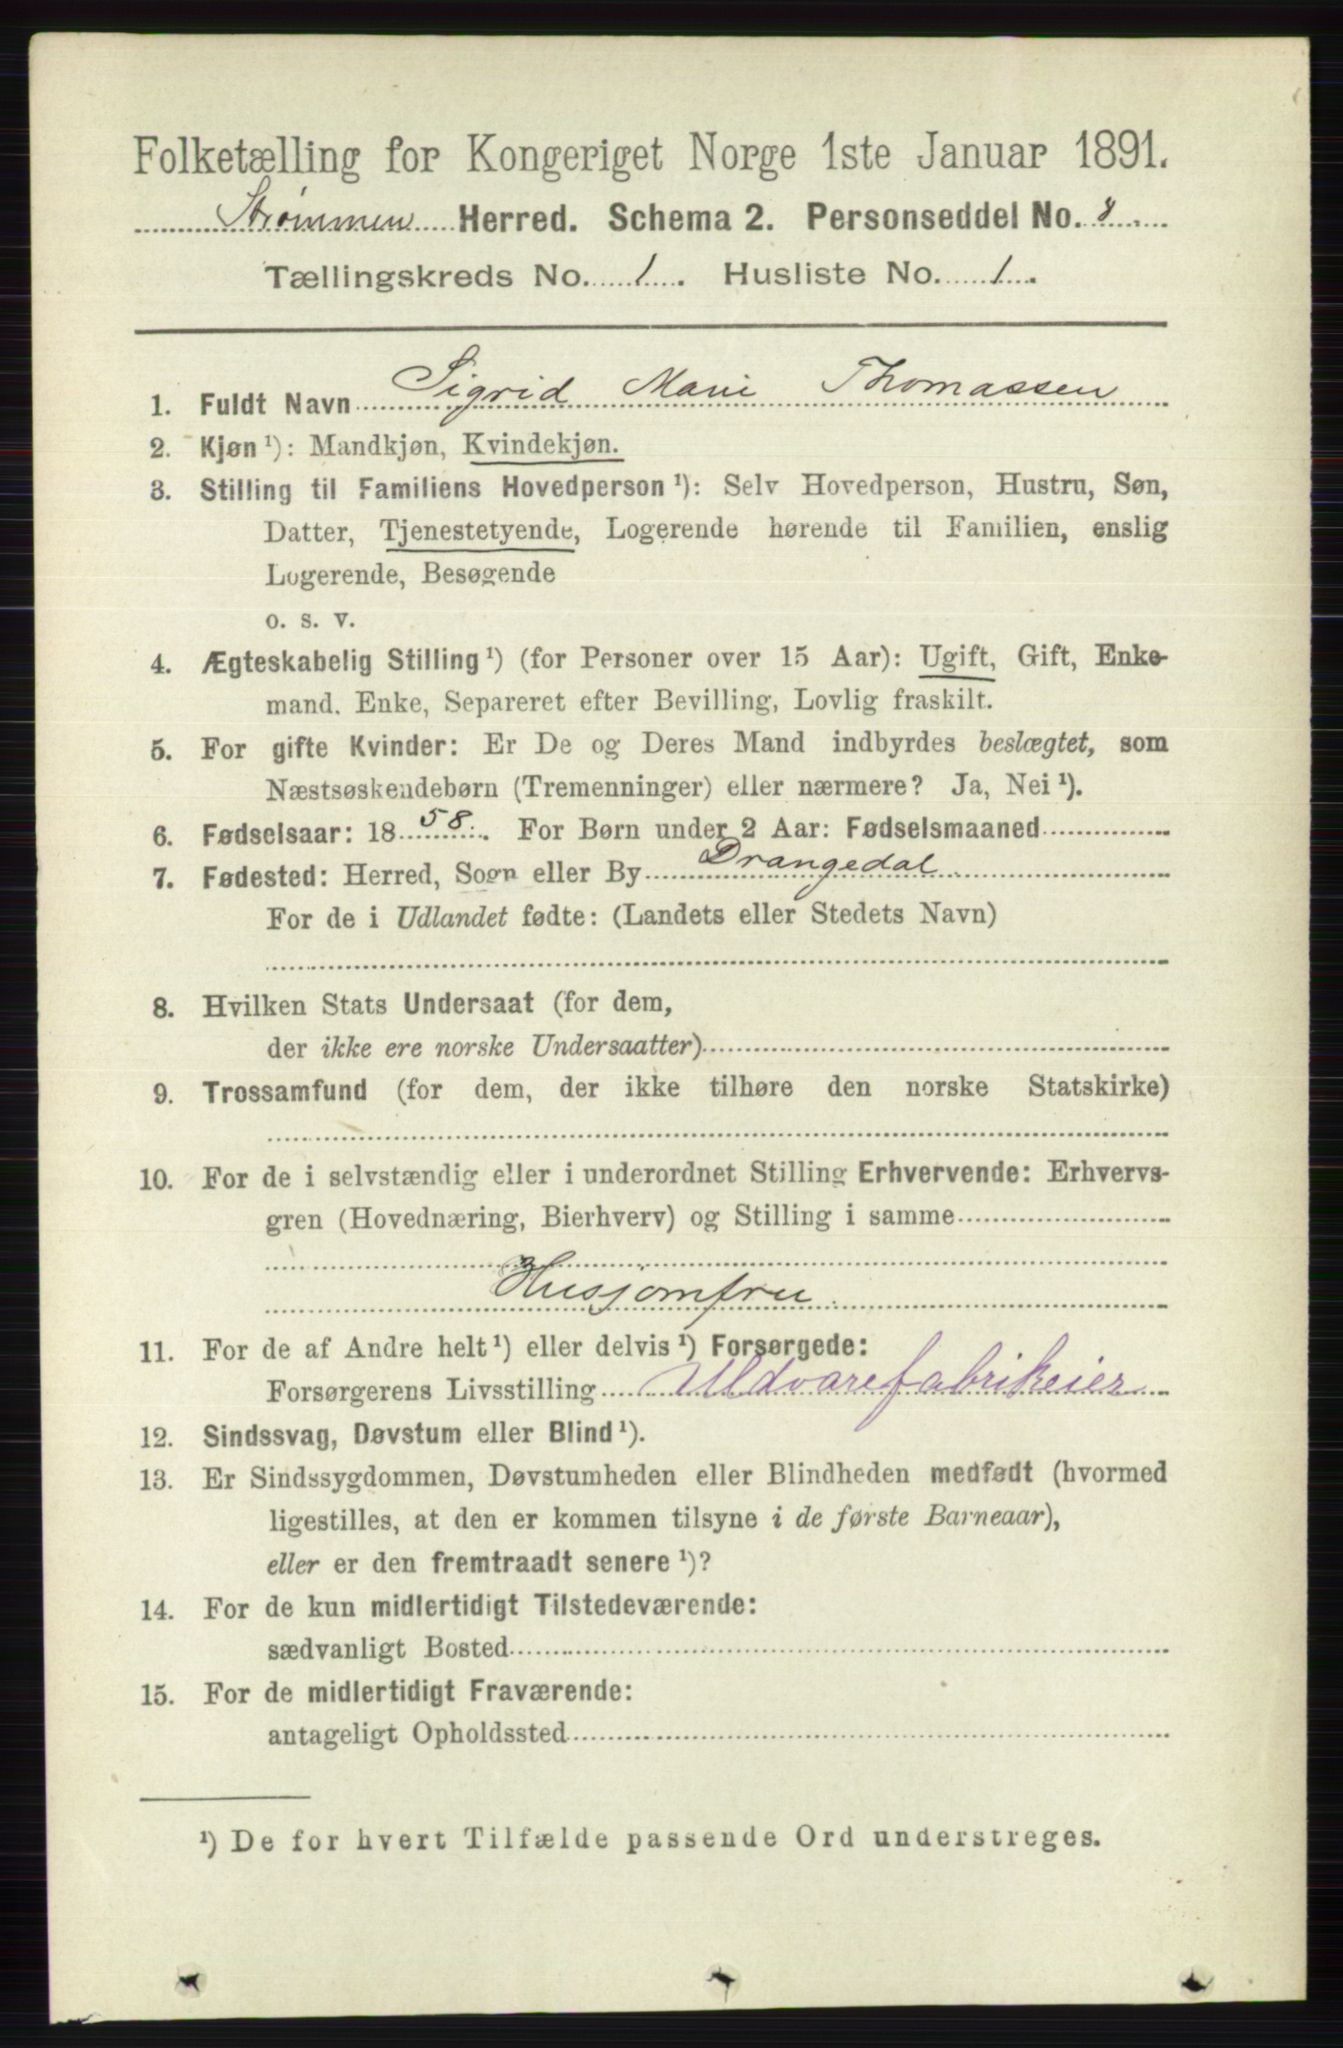 Folketælling for Kongeriget Norge 1ste Januar 1891.
Strømmen Herred. Schema 2. Personseddel No. 8.
Tællingskreds No. 1. Husliste No. 1.
1. Fuldt Navn Sigrid Marie Thomassen
2. Kjøn ¹): Mandkjøn, Kvindekjøn.
3. Stilling til Familiens Hovedperson ¹): Selv Hovedperson, Hustru, Søn,
Datter, Tjenestetyende, Logerende hørende til Familien, enslig
Logerende, Besøgende
o. s. v.
4. Ægteskabelig Stilling ¹) (for Personer over 15 Aar): Ugift, Gift, Enke-
mand, Enke, Separeret efter Bevilling, Lovlig fraskilt.
5. For gifte Kvinder: Er De og Deres Mand indbyrdes beslægtet, som
Næstsøskendebørn (Tremenninger) eller nærmere? Ja, Nei ¹).
6. Fødselsaar: 1858. For Børn under 2 Aar: Fødselsmaaned
7. Fødested: Herred, Sogn eller By Drangedal
For de i Udlandet fødte: (Landets eller Stedets Navn)
8. Hvilken Stats Undersaat (for dem,
der ikke ere norske Undersaatter)
9. Trossamfund (for dem, der ikke tilhøre den norske Statskirke)
10. For de i selvstændig eller i underordnet Stilling Erhvervende: Erhvervs-
gren (Hovednæring, Bierhverv) og Stilling i samme
Husjomfru
11. For de af Andre helt ¹) eller delvis ¹) Forsørgede:
Forsørgerens Livsstilling Uldvarefabrikeier
12. Sindssvag, Døvstum eller Blind ¹).
13. Er Sindssygdommen, Døvstumheden eller Blindheden medfødt (hvormed
ligestilles, at den er kommen tilsyne i de første Barneaar),
eller er den fremtraadt senere ¹)?
14. For de kun midlertidigt Tilstedeværende:
sædvanligt Bosted
15. For de midlertidigt Fraværende:
antageligt Opholdssted
¹) De for hvert Tilfælde passende Ord understreges.